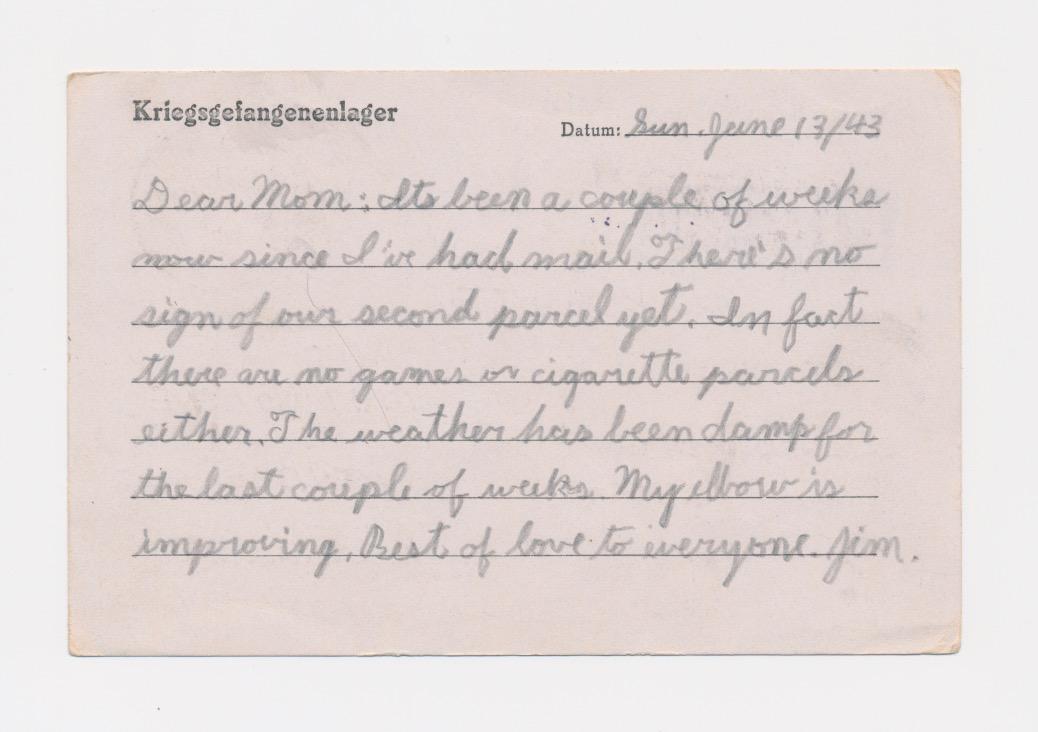 Kriegsgefangenenlager
Datum: Sun. June 13/43
Dear Mom: Its been a couple of weeks
now since I've had mail. There's no
sign of our second parcel yet. In fact
there are no games or cigarette parcels
either. The weather has been damp for
the last couple of weeks. My elbow is
improving. Best of love to everyone. Jim.